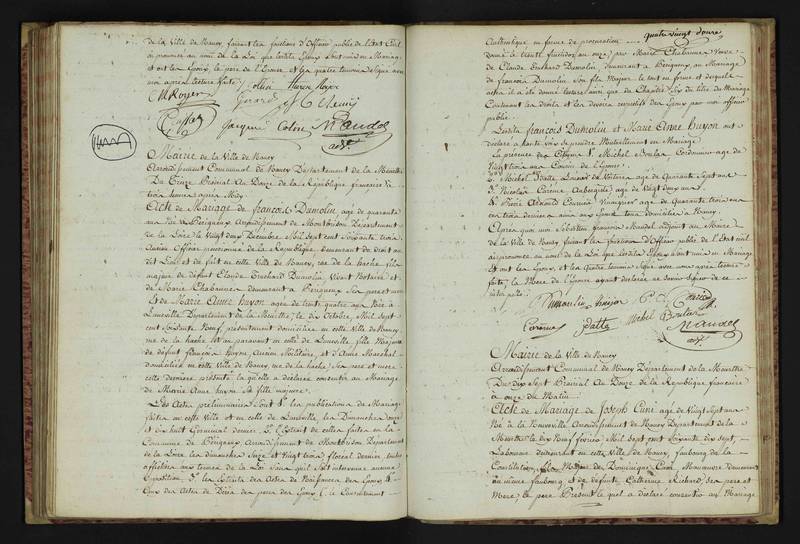 de la Ville de Nancy faisant les fonctions d'Officier public de l'Etat Civil
ai prononcé au nom de la Loi que lesdits Epoux sont unis en Mariage
et ont les Epoux, le père de l'Epouse et les quatre témoins signé avec
moi après lecture faite
Mandel
adjt
Mairie de la Ville de Nancy
Arrondissement Communal de Nancy Département de la Meurthe
Du Treize Prairial An Douze de la République française à
trois heures après Midy
Acte de Mariage de françois Dumolin, agé de quarante
ans Né à Périgneux Arrondissement de Montbrison Département
de la Loire le Vingt deux Décembre Mil Sept cent Soixante trois
demeurant de droit au
dit Lieu et de fait en cette Ville de Nancy, rue de la hache fils
majeur de défunt Claude Dumolin, Vivant Notaire et
de Marie Chabanne demeurant à Périgneux Ses père et mère
Et de Marie Anne huyon agée de trente quatre ans Née à
Lunéville Département de la Meurthe, le dix Octobre, Mil Sept
cent Soixante Neuf, présentement domiciliée en cette Ville de Nancy
rue de la hache et auparavant en celle de Lunéville, fille Majeure
de défunt françois huyon, Ancien Militaire, et d'Anne Maréchal
domiciliée en cette Ville de Nancy, rue de la hache, Ses père et mère
cette dernière présente laquelle a déclaré consentir au Mariage
de Marie Anne huyon Sa fille majeure
Les Actes préliminaires Sont 1° les publications de Mariage
faites en cette Ville et en celle de Lunéville, les Dimanches douze
et dix huit Germinal dernier 2° l'Extrait de celles faites en la
Commune de Périgneux Arrondissement de Montbrison Département
de la Loire les dimanches Seize et Vingt trois floréal dernier, toutes
affichées aux termes de la Loi Sans qu'il Soit intervenu aucune
opposition 3° les Extraits des Actes de Naissances des Epoux 4°
Ceux des Actes de Décès des pères des Epoux 5° le Consentement
quatre vingt douze
Authentique en forme de procuration
donné le trente fructidor an onze par Marie Chabanne Veuve
de Claude Dumolin, demeurant à Périgneux, au Mariage
de françois Dumolin Son fils Majeur. le tout en forme et desquels
actes il a été donné lecture ainsi que du Chapitre Six du titre du Mariage
Contenant les droits et les devoirs respectifs des Epoux par moi officier
public
Lesdits françois Dumolin et Marie Anne huyon ont
déclaré à haute voix se prendre Mutuellement en Mariage
En présence des Citoyens 1° Michel Boulas Cordonnier agé de
Vingt trois ans Cousin de l'Epouse
2° Michel Patte de Voiture agé de quarante Sept ans
3° Nicolas Aubergiste agé de Vingt deux ans
4° agé de quarante trois ans
ces trois derniers amis aux Epoux tous domiciliés à Nancy
Après quoi moi Sébastien françois Mandel adjoint au Maire
de la Ville de Nancy faisant les fonctions d'Officier public de l'Etat civil
ai prononcé au nom de la Loi que lesdits Epoux sont unis en Mariage
et ont les Epoux, et les quatre témoins signé avec moi après lecture
faite, la Mère de l'Epouse ayant déclaré ne savoir signer de ce
interpellée
Dumoulin huyon
patte Michel Boulas
Mandel
adjt
Mairie de la Ville de Nancy
Arrondissement Communal de Nancy Département de la Meurthe
Du dix Sept Prairial An Douze de la République française
à onze du Matin
Acte de Mariage de Joseph Cuni agé de Vingt Sept ans
Né à la Neuveville Arrondissement de Nancy Département de la
Meurthe le Neuf février Mil Sept cent soixante dix Sept,
Laboureur demeurant en cette Ville de Nancy, faubourg de la
Constitution, fils Majeur de Dominique Cuni Manœuvre demeurant
au même faubourg et de défunte Catherine Richard, ses père et
Mère, le père Présent lequel a déclaré consentir au Mariage